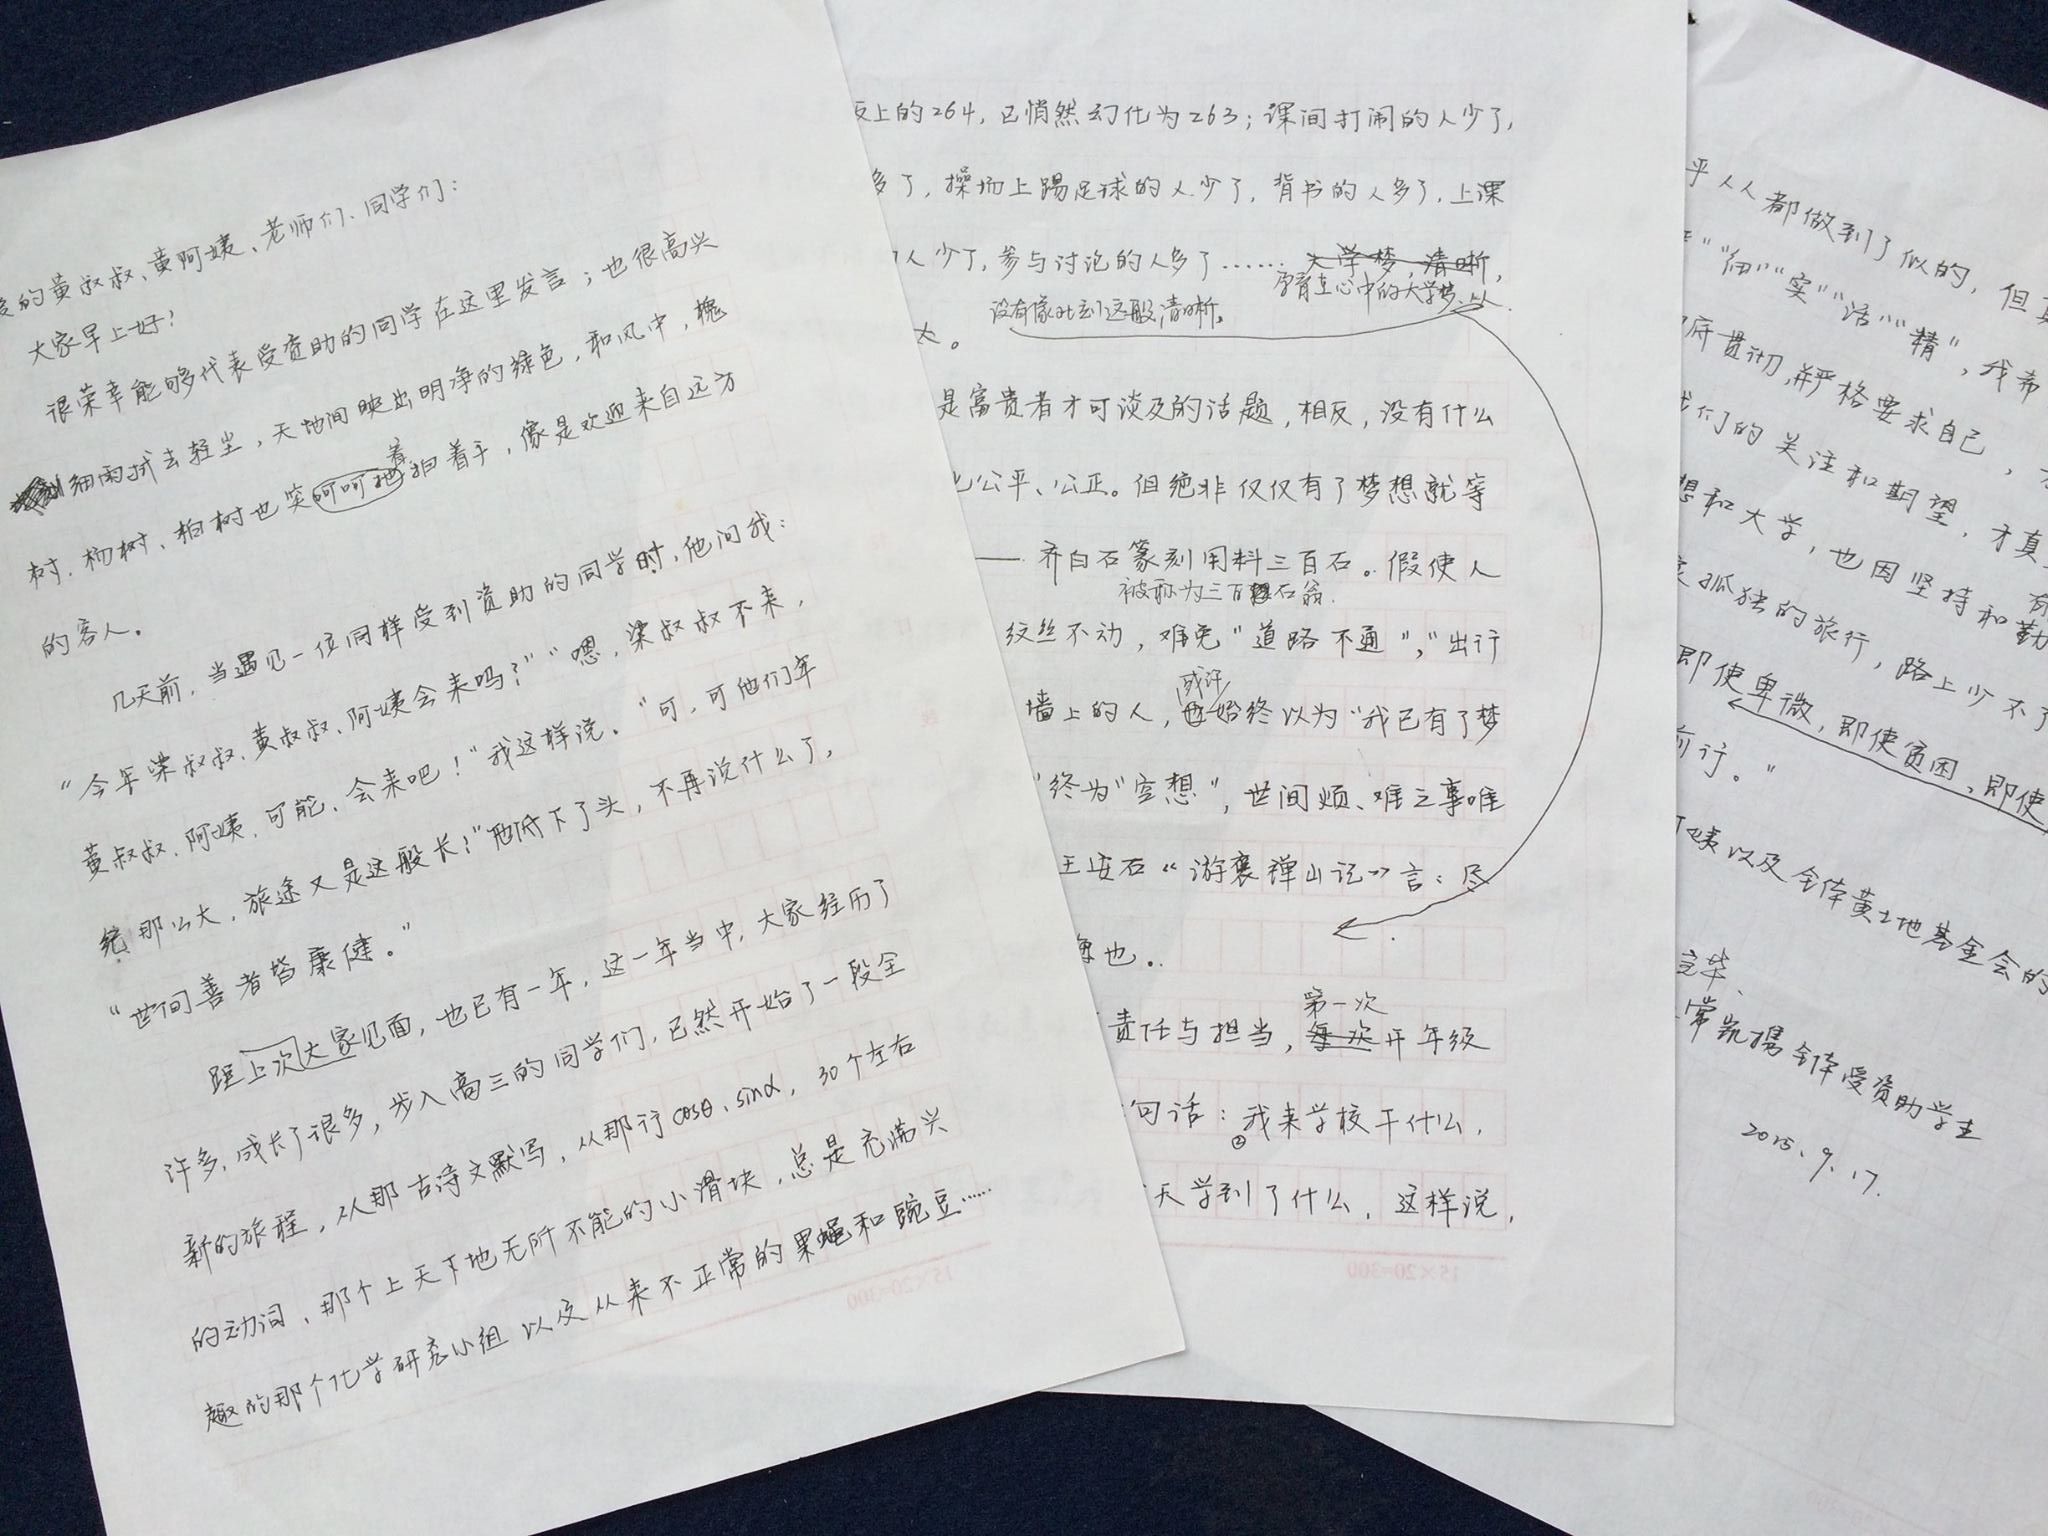 爱的黄叔叔、黄阿姨、老师们、同学们：
大家早上好！
很荣幸能够代表受资助的同学在这里发言；也很高兴
细雨拭去轻尘，天地间映出明净的绿色，和风中，槐
树、杨树、柏树也笑呵呵地着拍着手，像是欢迎来自远方
的客人。
几天前，当遇见一位同样受到资助的同学时，他问我：
“今年梁叔叔、黄叔叔、阿姨会来吗？”“嗯，梁叔叔不来，
黄叔叔、阿姨，可能，会来吧！”我这样说。“可，可他们年
纪那么大，旅途又是这般长！”他低下了头，不再说什么了，
“世间善者皆康健。”
距上次大家见面，也已有一年，这一年当中，大家经历了
许多，成长了很多，步入高三的同学们，已然开始了一段全
新的旅程，从那古诗文默写，从那行cosθ、sinα，30个左右
的动词、那个上天下地无所不能的小滑块，总是充满兴
趣的那个化学研究小组以及从来不正常的果蝇和豌豆……
上的264，已悄然幻化为263；课间打闹的人少了，
多了，操场上踢足球的人少了，背书的人多了，上课
人少了，参与讨论的人多了……大学梦，清晰，
孕育在心中的大学梦，从
没有像此刻这般清晰。
大。
是富贵者才可谈及的话题，相反，没有什么
公平、公正。但绝非仅仅有了梦想就等
——齐白石篆刻用料三百石。假使人
被称为三百石翁.
纹丝不动，难免“道路不通”，“出行
或许
墙上的人，也始终以为“我已有了梦
”终为“空想”，世间烦、难之事唯
王安石《游褒禅山记》言：尽
悔也。
第一次
责任与担当，每次开年级
句话：我来学校干什么，
天学到了什么，这样说，
15×20=300
15×20=300
乎人人都做到了似的，但真
“细”“实”“活”“精”，我希
府贯彻，并严格要求自己，
我们的关注和期望，才真
想和大学，也因坚持和勤
孤独的旅行，路上少不了
即使卑微，即使贫困，即使
前行。”
阿姨以及全体黄土地基金会的
完毕、
常凯携全体受资助学生
2015.9.17.